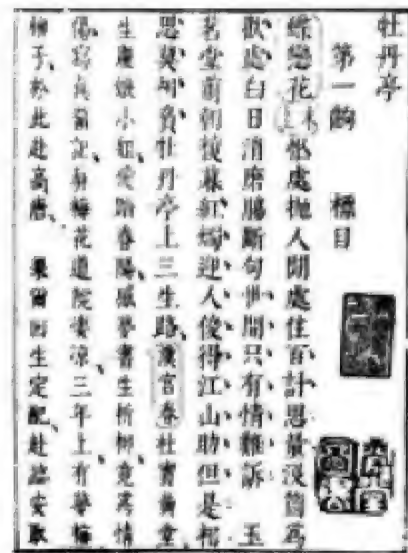 牡丹亭
第一齣 標目
蝶戀花末上忙處拋人閒處住百計思量沒箇為
歡處白日消磨腸斷句世間只有情難訴 玉
茗堂前朝復暮紅燭迎人俊得江山助但是相
思莫相負牡丹亭上三生路漢宮春杜寶黃堂
生麗娘小姐愛踏春陽感夢書生折柳竟為情
傷寫真留記葬梅花道院淒涼三年上有夢梅
柳子於此赴高唐 果爾回生定配赴臨安取